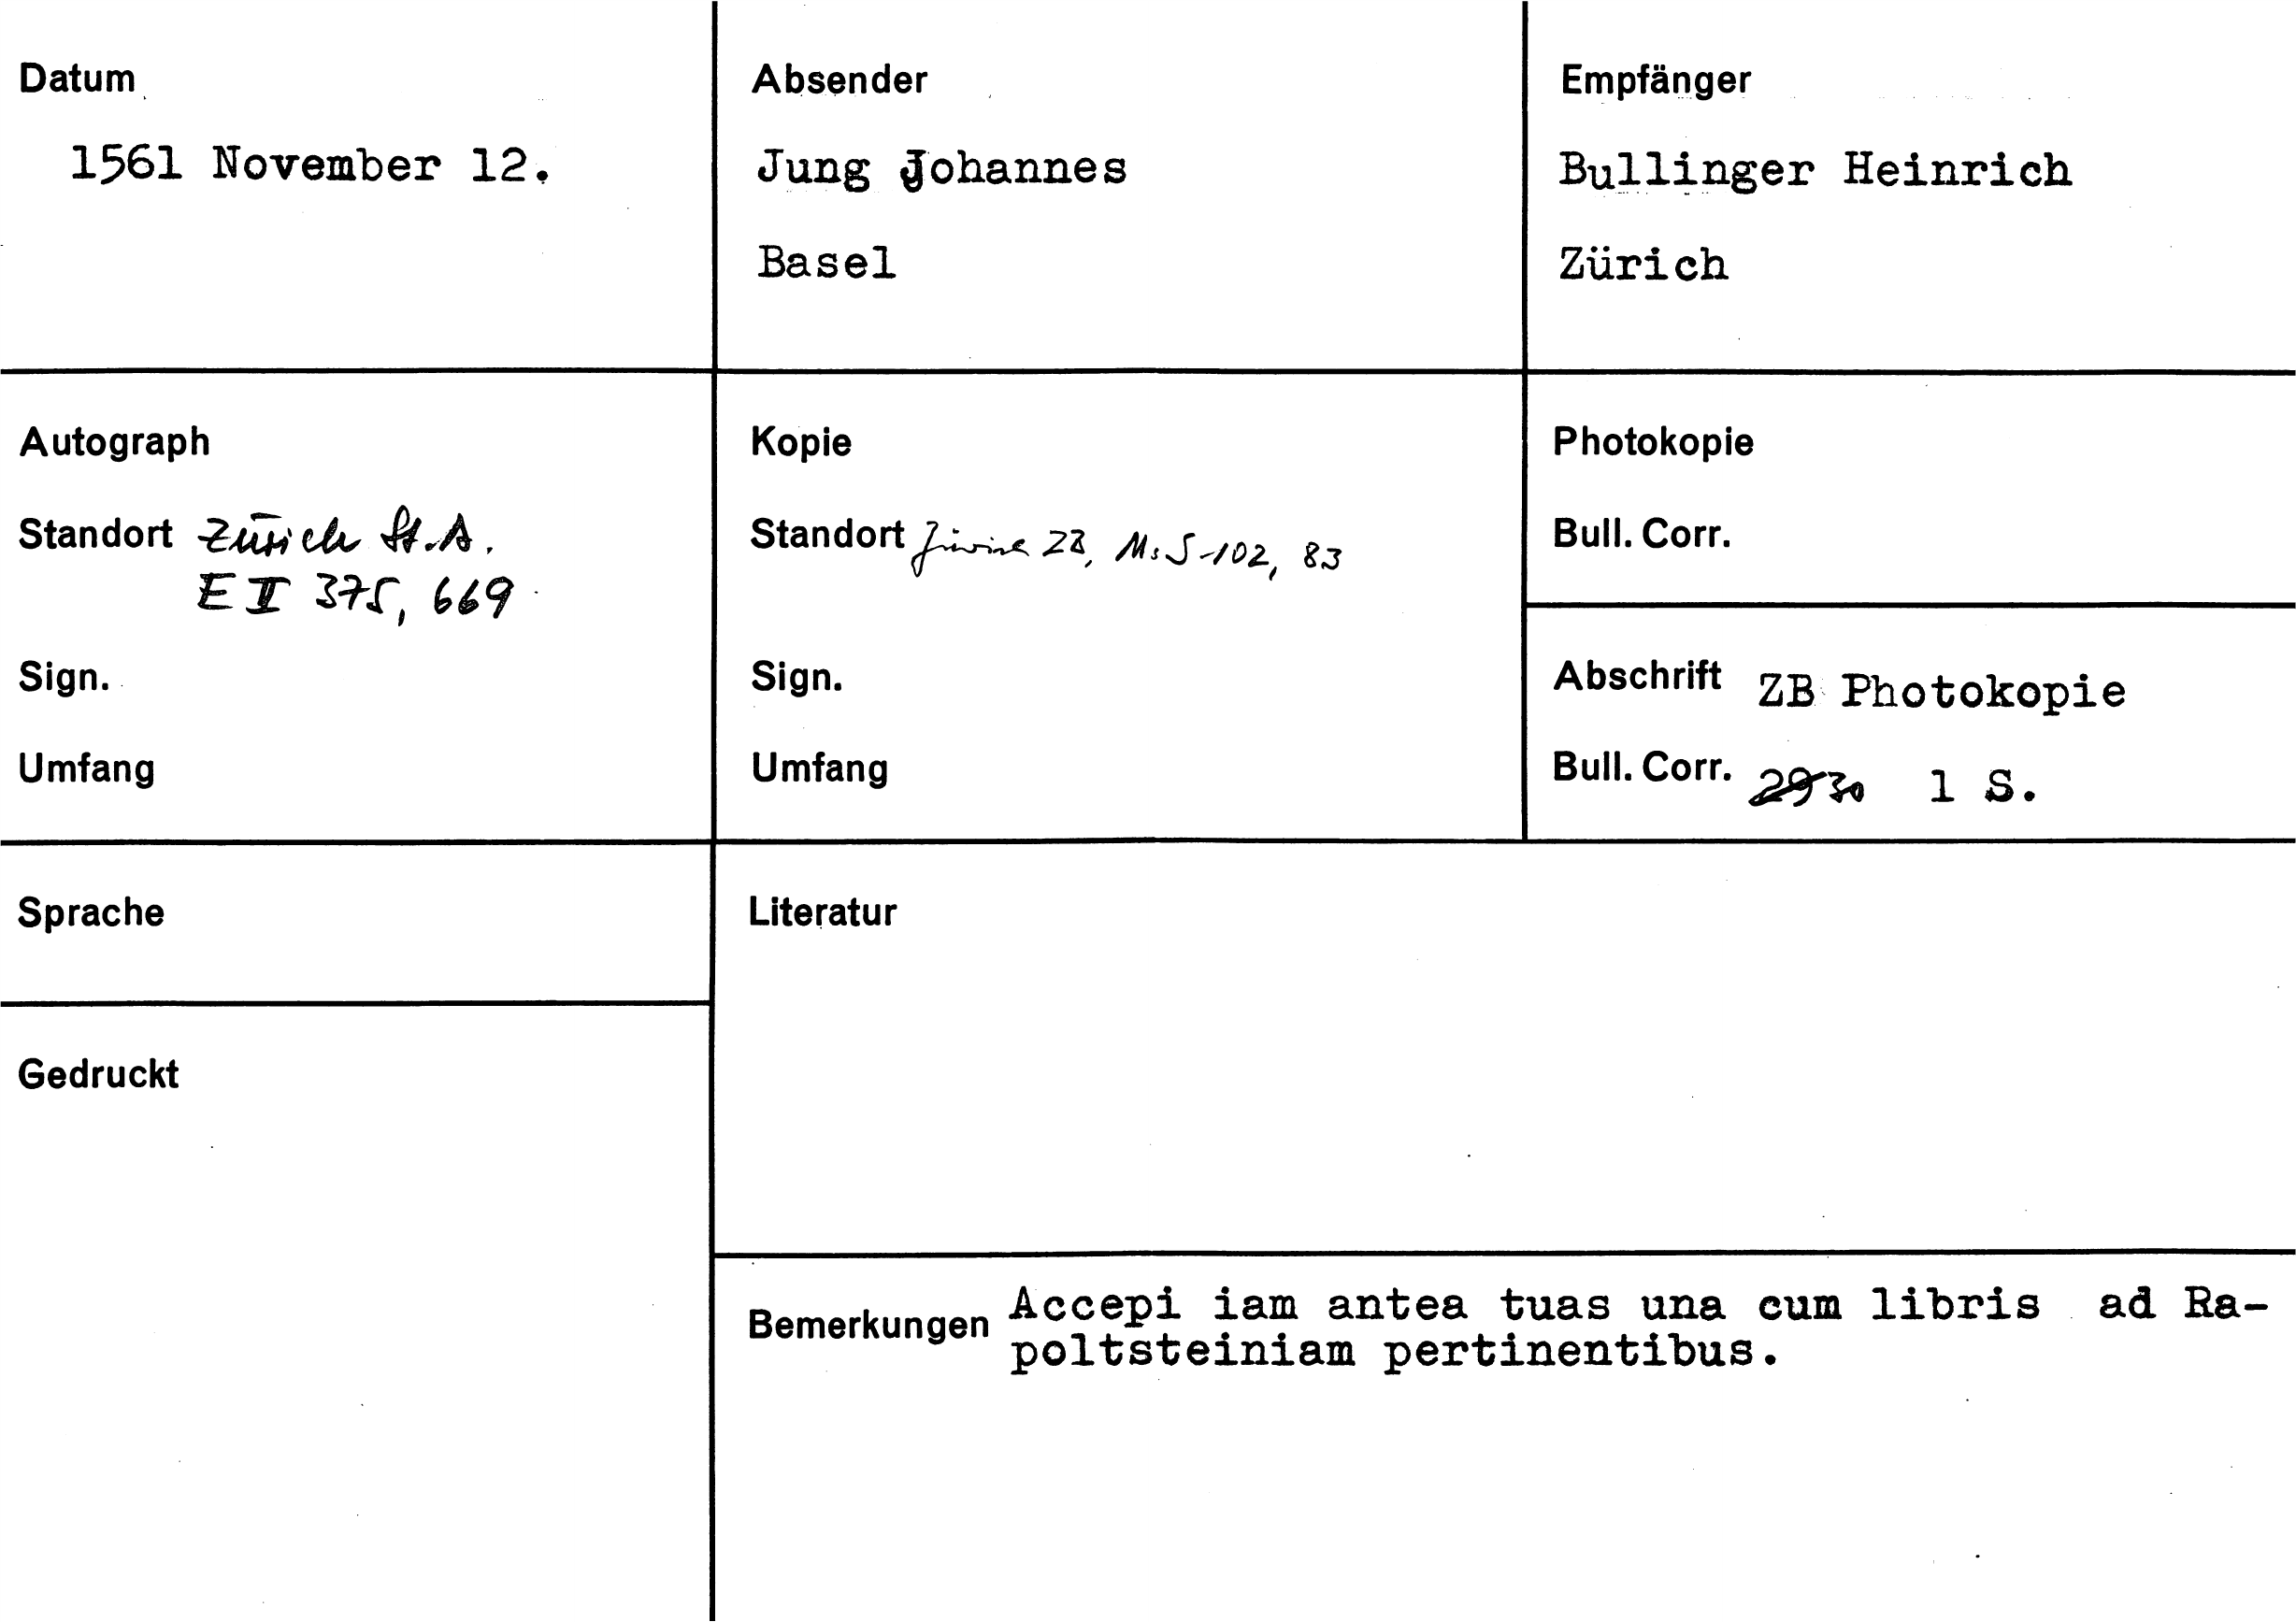 Datum
1561 November 12.
Absender
Jung Johannes
Basel
Empfänger
Bullinger Heinrich
Zürich
Autograph
Standort Zürich St.A.
E II 375, 669
Sign.
Umfang
Kopie
Standort Zürich ZB, Ms S-102, 83
Sign.
Umfang
Photokopie
Bull. Corr.
Abschrift ZB Photokopie
Bull. Corr. 29 30 1 S.
Sprache
Literatur
Gedruckt
Bemerkungen Accepi iam antea tuas una cum libris ad Ra-
poltsteiniam pertinentibus.